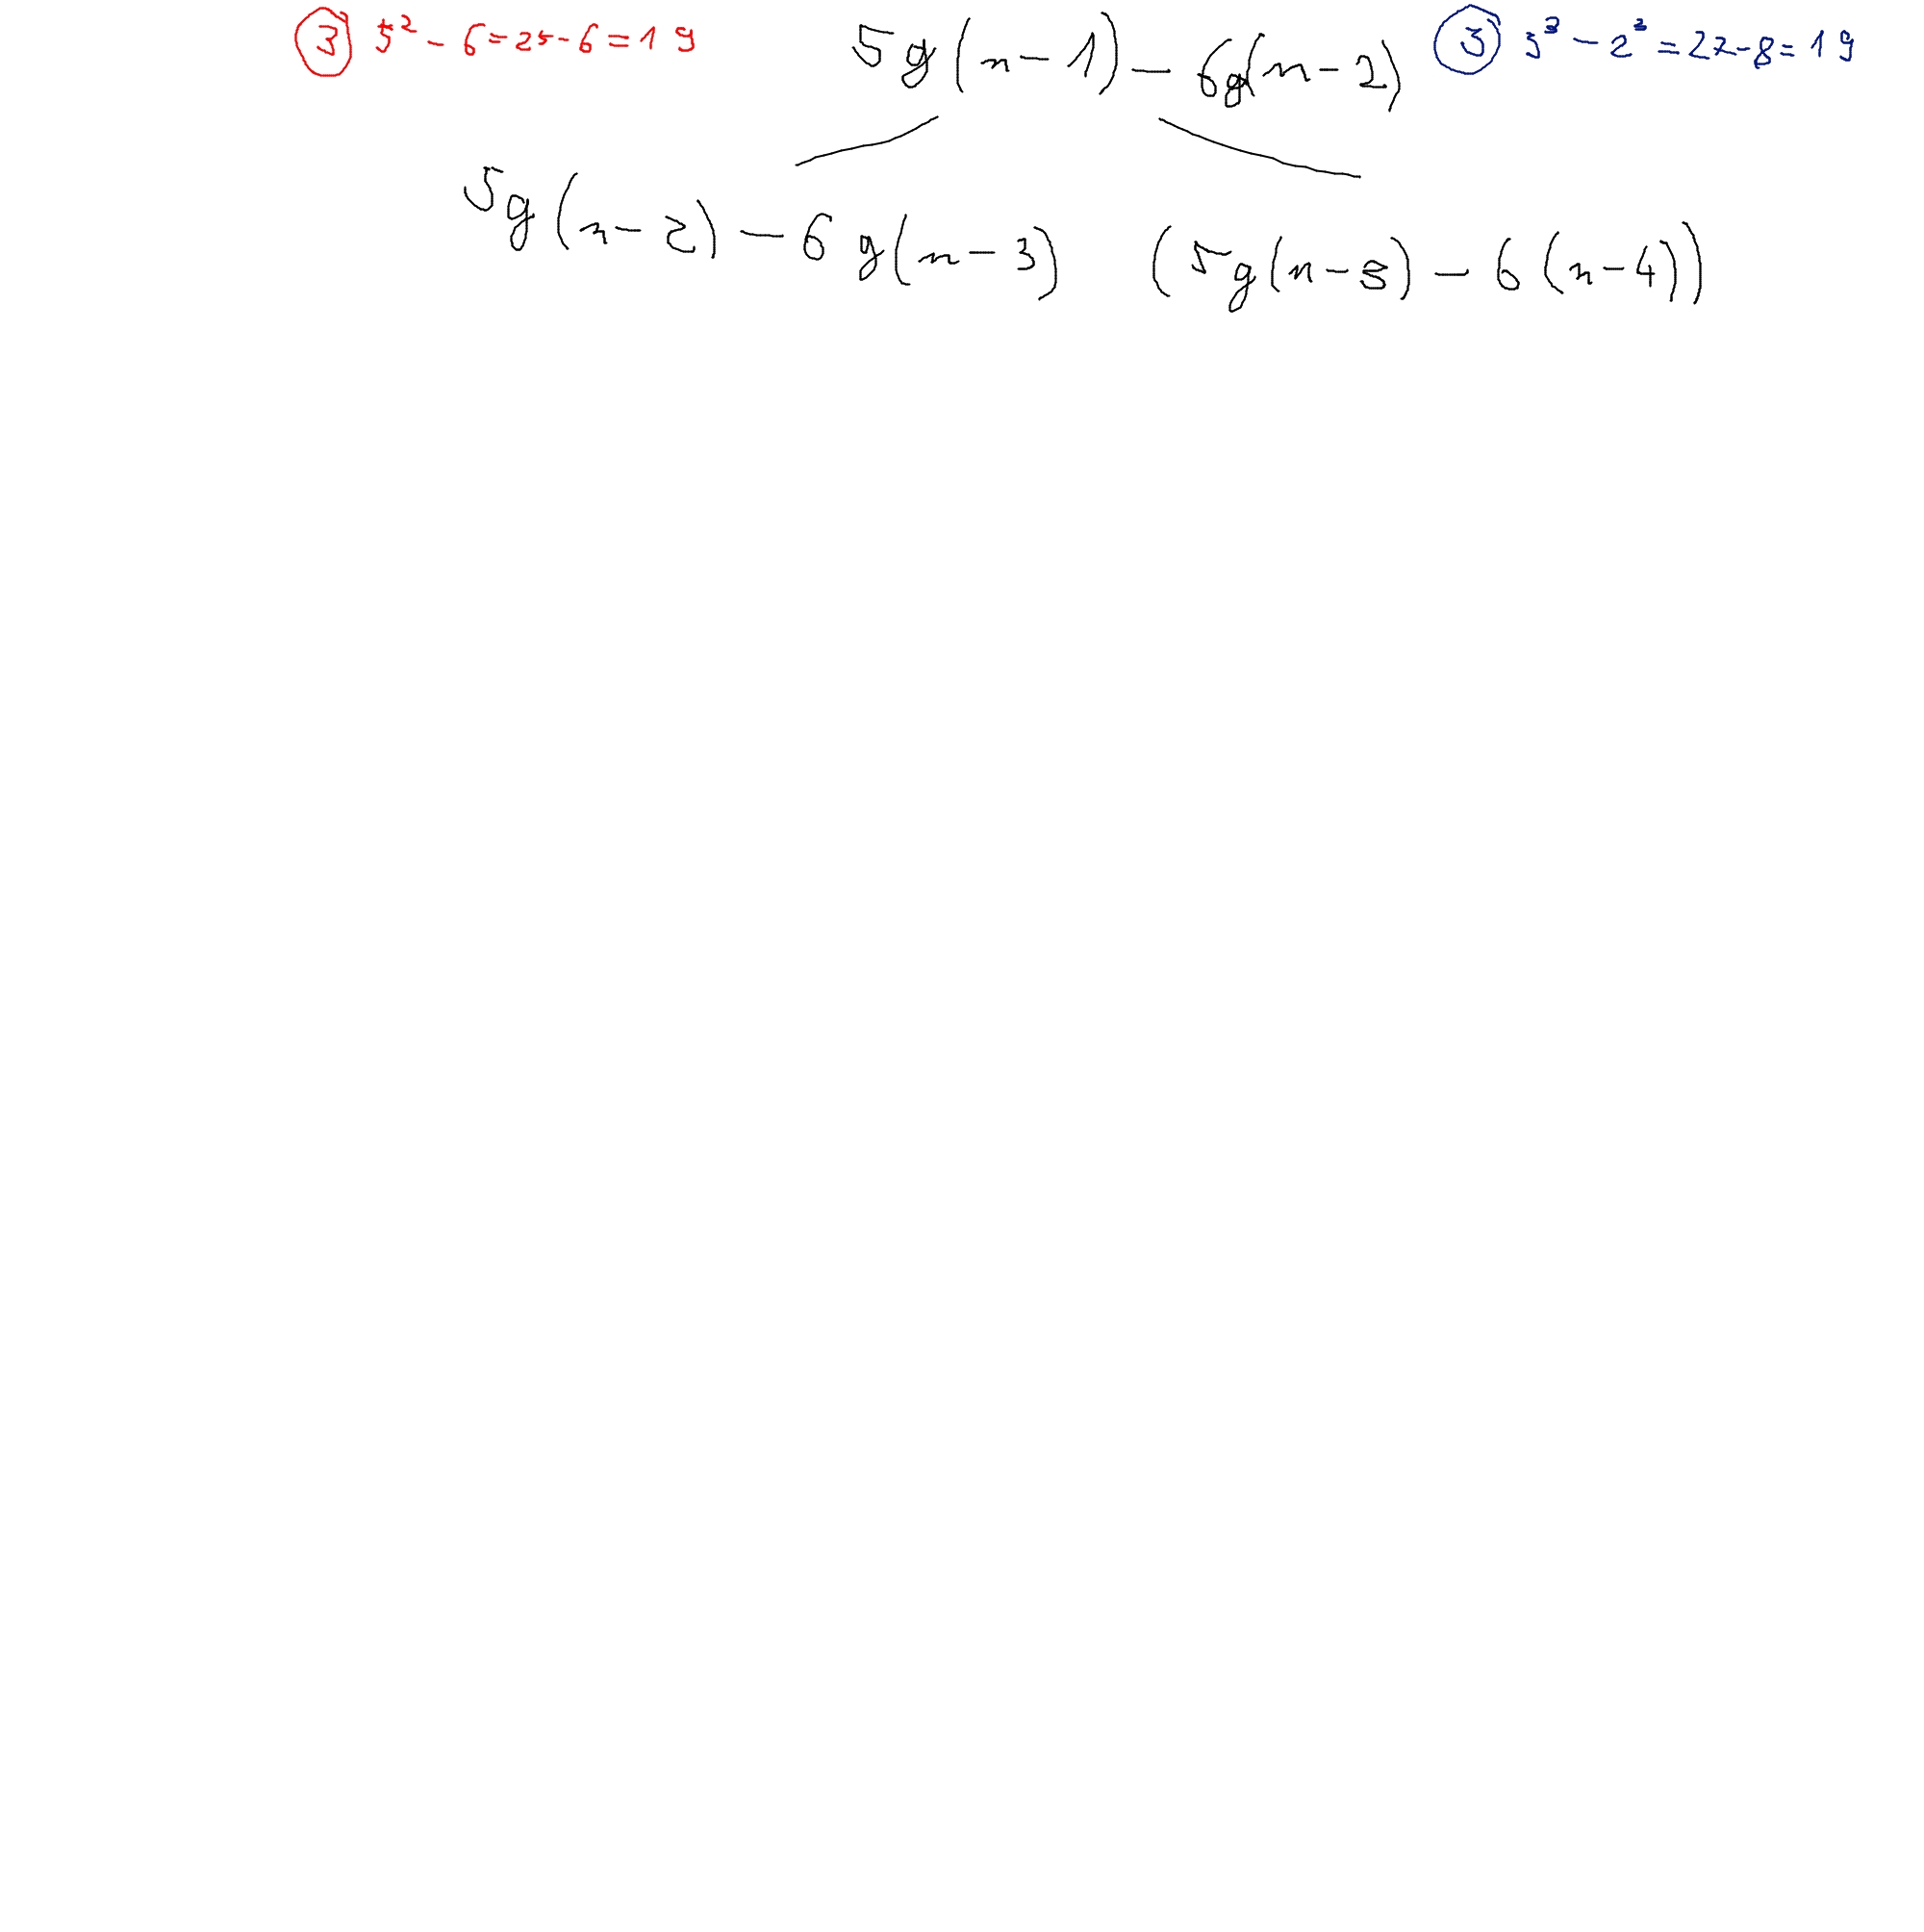 ③ 5² - 6 = 25 - 6 = 19 5g(n-1) - 6g(n-2) ③ 3³ - 2³ = 27 - 8 = 19
5g(n-2) - 6g(n-3) (5g(n-3) - 6(n-4))